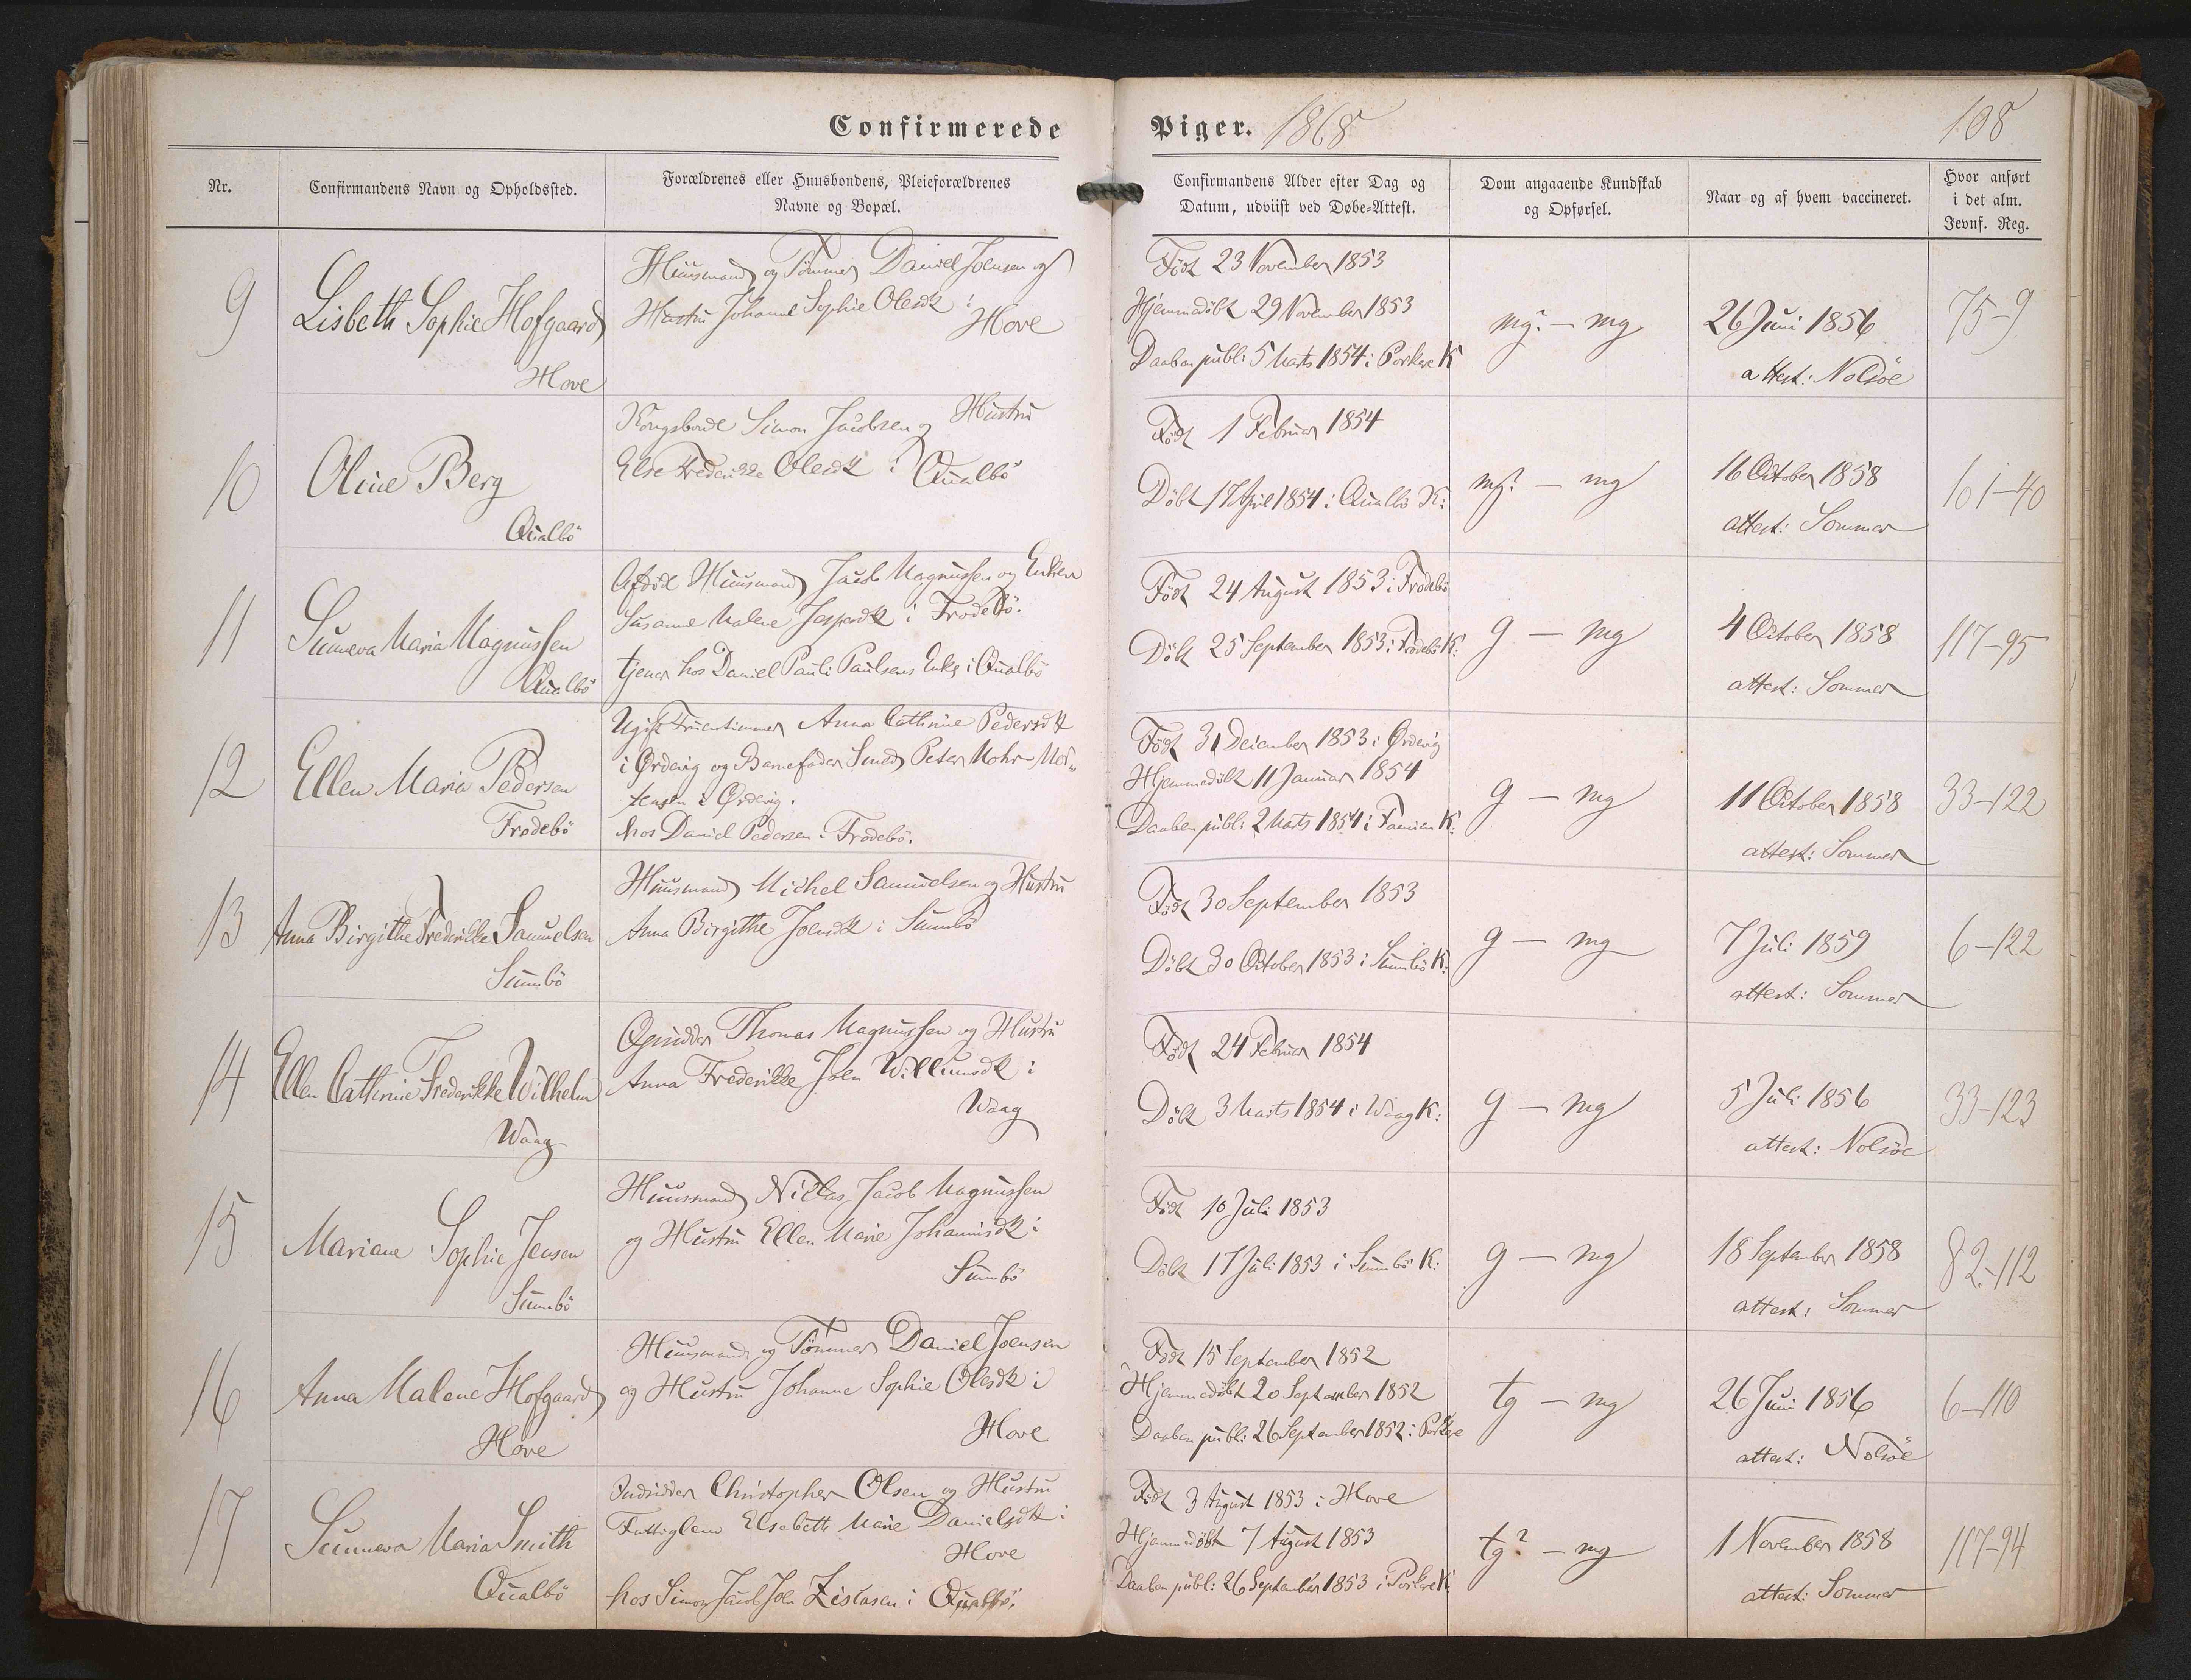 Confirmerede Piger. 1868
108
Nr.
Confirmandens Navn og Opholdssted.
Forældrenes eller Huusbondens, Pleieforældrenes
Navne og Bopæl.
Confirmandens Alder efter Dag og
Datum, udviist ved Døbe-Attest.
Dom angaaende Kundskab
og Opførsel.
Naar og af hvem vaccineret.
Hvor anført
i det alm.
Jevnf. Reg.
9
Lisbeth Sophie Hofgaard
Hove
Huusmand og Tömmer Daniel Joensen og
Hustru Johanne Sophie Olesdt i
Hove
Født 23 November 1853
Hjemmedöbt 29 November 1853
Daaben publ: 5 Marts 1854 i Porkere K
mg? – mg
26 Juni 1856
attest: Nolsöe
75–9
10
Oline Berg
Qualbö
Kongsbonde Simon Jacobsen og Hustru
Else Frederikke Olesdt i Qualbö
Født 1 Februar 1854
Döbt 17 April 1854 i Qualbö K:
mg? – mg
16 October 1858
attest: Sommer
101–40
11
Sunneva Maria Magnussen
Qualbö
Afdöd Huusmand Jacob Magnussen og Enken
Susanne Malene Jespersdt i Frodebö.
tjener hos Daniel Pauli Paulsens Enke i Qualbö
Født 24 August 1853 i Frodebö
Döbt 25 September 1853 i Frodebö K:
g – mg
4 October 1858
attest: Sommer
117–95
12
Ellen Maria Pedersen
Frodebö
Ugift Fruentimmer Anna Cathrine Pedersdt
i Ørdevig og Barnefader Smed Peter Mohr Mor-
tensen i Ørdevig.
hos Daniel Pedersen i Frodebö.
Født 31 December 1853 i Ørdevig
Hjemmedöbt 11 Januar 1854
Daaben publ: 2 Marts 1854 i Famien K:
g – mg
11 October 1858
attest: Sommer
33–122
13
Anna Birgithe Frederikke Samuelsen
Sumbö
Huusmand Michel Samuelsen og Hustru
Anna Birgithe Joensdt i Sumbö
Født 30 September 1853
Döbt 30 October 1853 i Sumbö K:
g – mg
7 Juli 1859
attest: Sommer
6–122
14
Ellen Cathrine Frederikke Wilhelm
Waag
Thomas Magnussen og Hustru
Anna Frederikke Joen Willumsdt i
Waag
Født 24 Februar 1854
Döbt 3 Marts 1854 i Waag K:
g – mg
5 Juli 1856
attest: Nolsöe
33–123
15
Mariane Sophie Jensen
Sumbö
Huusmand Niclas Jacob Magnussen
og Hustru Ellen Marie Johannisdt i
Sumbö
Født 10 Juli 1853
Döbt 17 Juli 1853 i Sumbö K:
g – mg
18 September 1858
attest: Sommer
82–112
16
Anna Malene Hofgaard
Hove
Huusmand og Tömmer Daniel Joensen
og Hustru Johanne Sophie Olesdt i
Hove
Født 15 September 1852
Hjemmedöbt 20 September 1852
Daaben publ: 26 September 1852 i Porkere
tg – mg
26 Juni 1856
attest: Nolsöe
6–110
17
Sunneva Maria Smith
Qualbö
Indsidder Christopher Olsen og Hustru
Fattiglem Elsebeth Marie Danielsdt i
Hove
hos Simon Jacob Joen Zislasen i Qualbö.
Født 3 August 1853 i Hove
Hjemmedöbt 7 August 1853
Daaben publ: 26 September 1853 i Porkere K
tg? – mg
1 November 1858
attest: Sommer
117–94